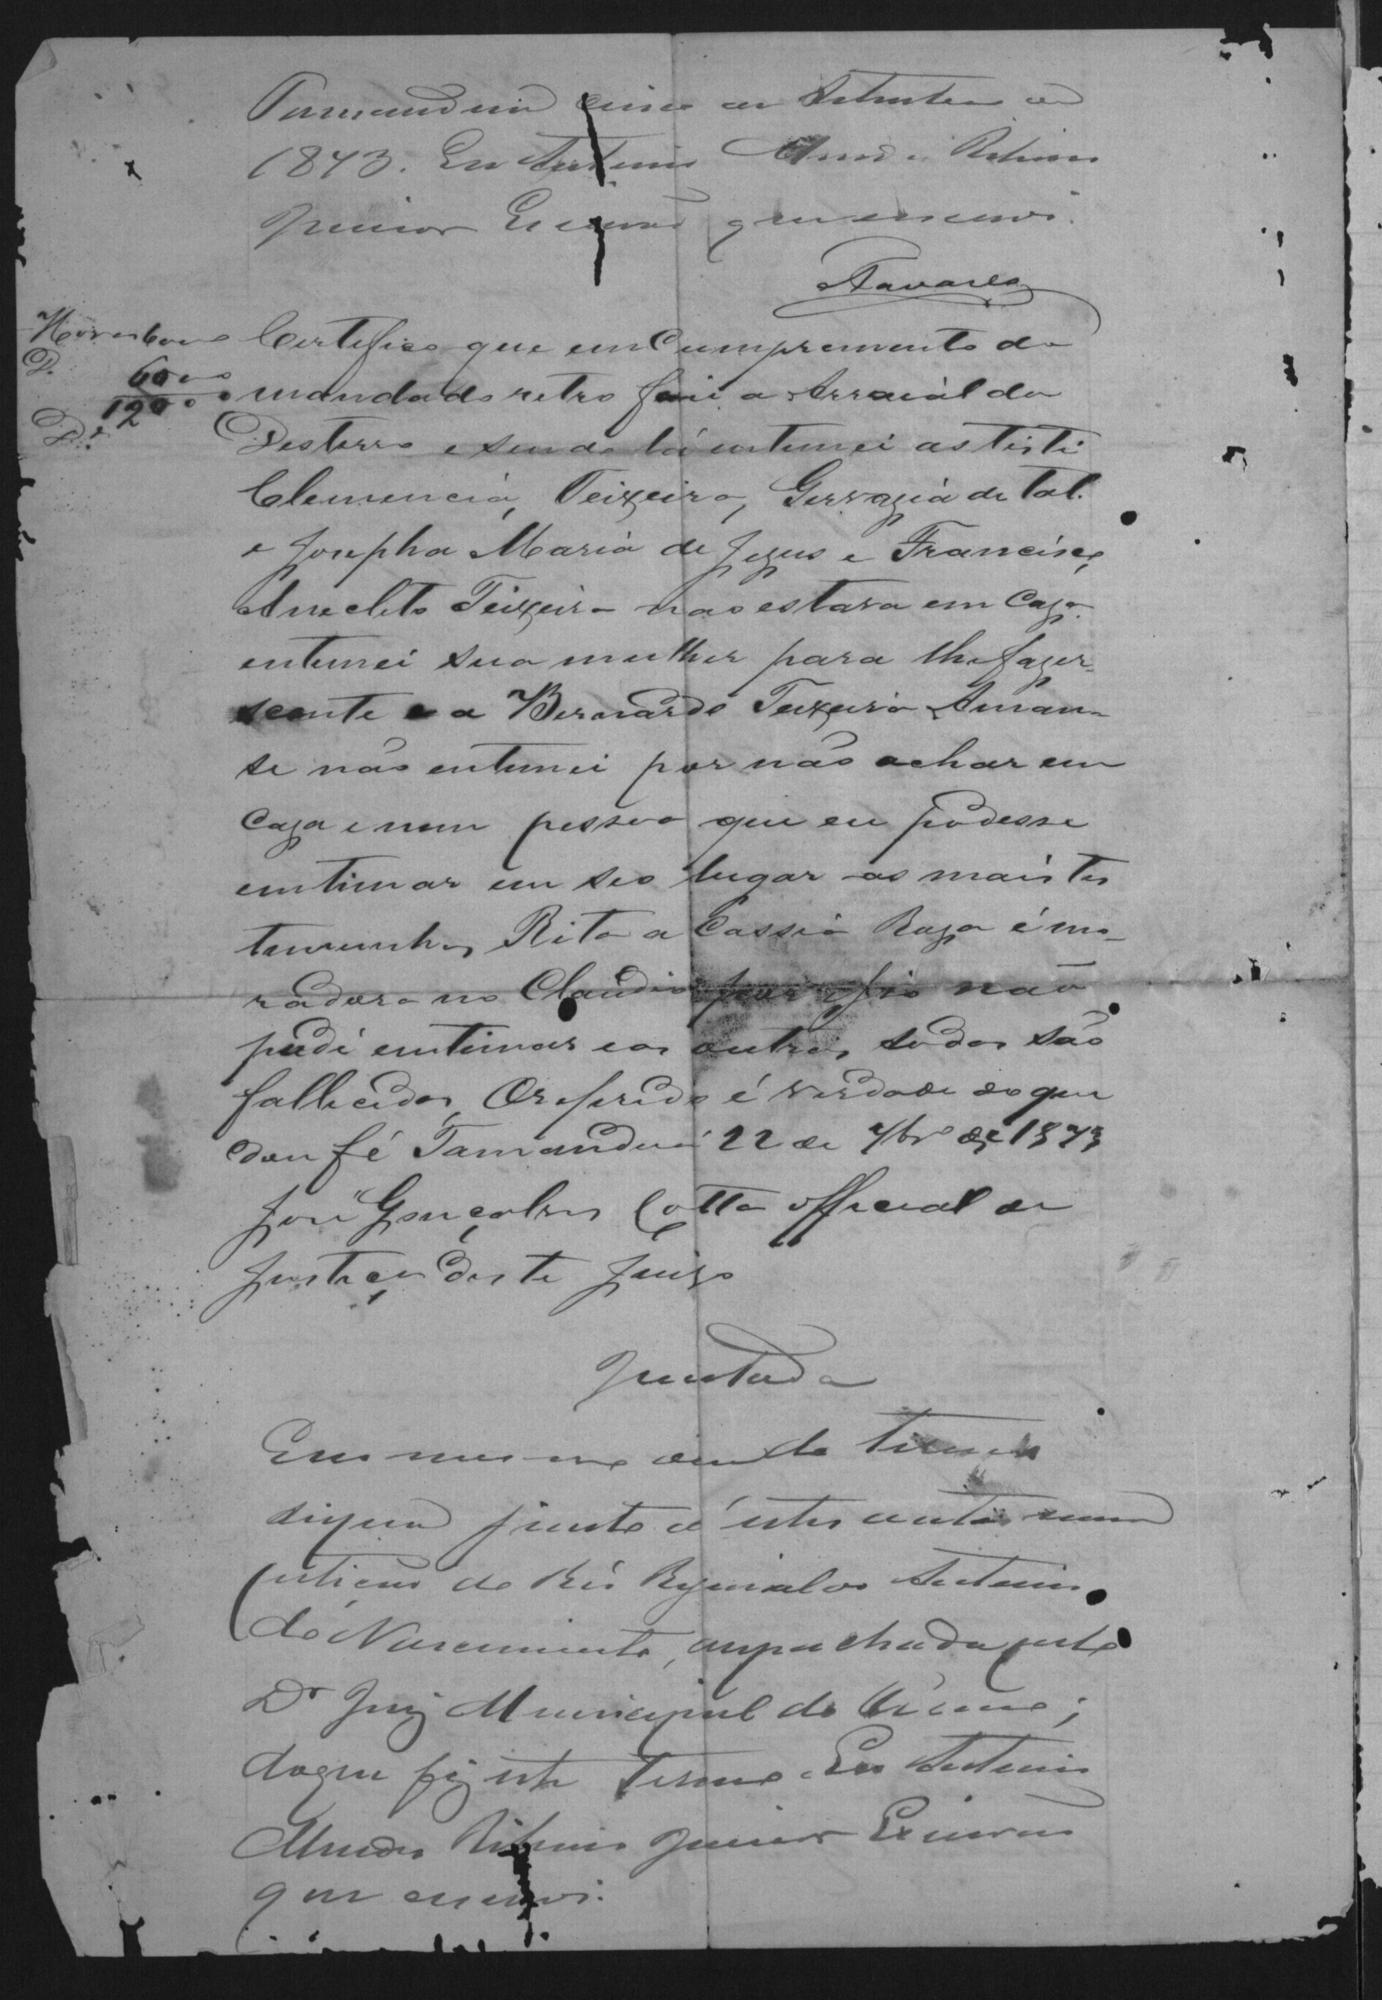 Tamanduá cinco de Setembro de
1873. Eu Antonio Mendes Ribeiro
Junior Escrivão que escrevi.
Tavares
Certifico que em Cumpremento do
6000
mandado retro fui a Arraiál do
12000
Desterro e sendo lá entimei as teste
Clemencia, Teixeira, Gervazia de tal.
e Josepha Maria de Jezus e Francisco
Anecleto Teixeira não estava em Caza
entimei sua mulher para lhe fazer
scente e a Bernardo Teixeira Aman-
se não entimei por não achar em
Caza e nem pessoa que eu podesse
emtimar em seo lugar as mais tes
temunhas Rita a Cassia Roza é mo-
radora no Claudio por isso não
pude emtimar e os outros todos são
fallecidos, O referido é verdade do que
dou fé Tamanduá 22 de 7br de 1873
José Gonçalves Cotta official de
Justiça deste Juizo
Juntada
Em mesmo dia do
junto á estes autos uma
petição do Réo Antonio
do Nascimento, despachada pelo
Dr Juiz Municipal do Termo;
do que fiz este Termo. Eu Antonio
Mendes Ribeiro Junior Escrivão
que escrevi.